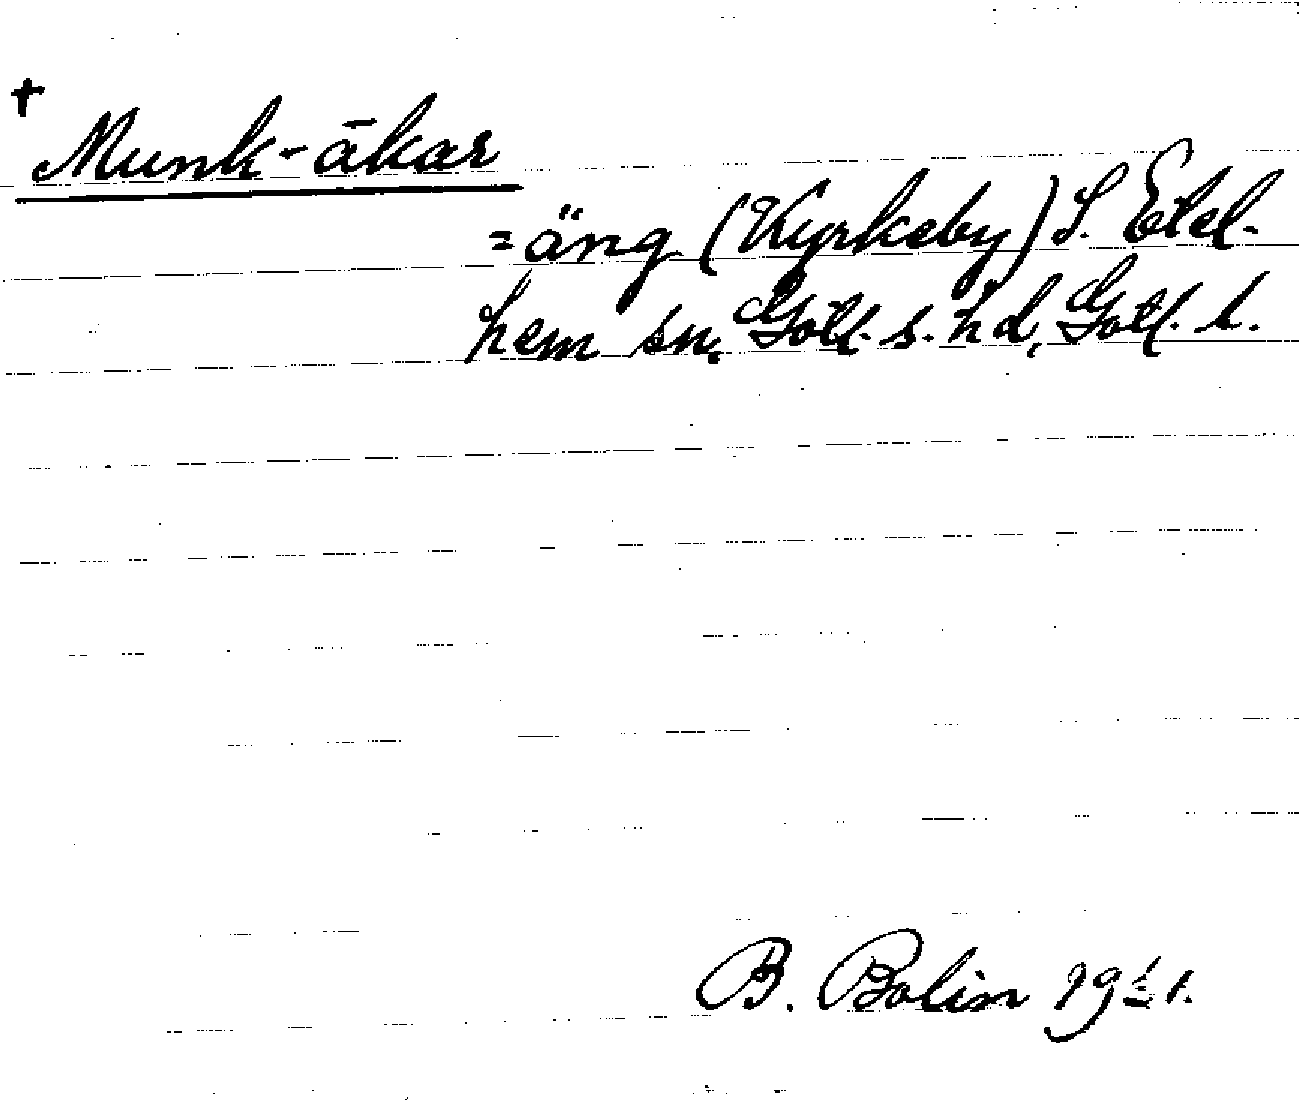 † Munk-ākar
= äng (Kyrkeby) S. Etel-
hem sn, Gotl. s. hd, Gotl. l.
B. Bolin